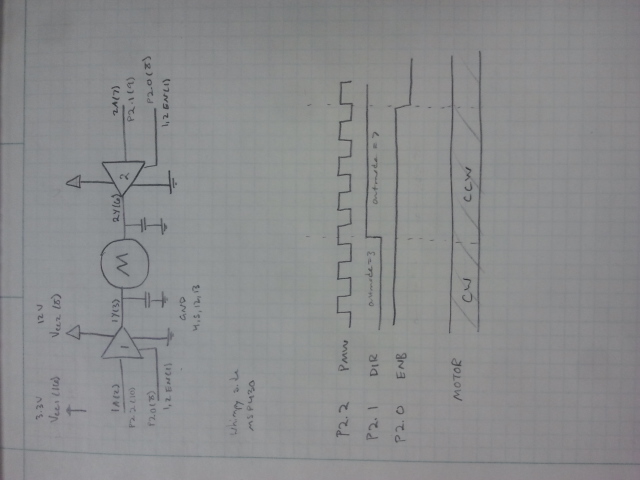 3.3V
Vcc1 (16)
12V
Vcc2 (8)
1A(2)
P2.2(10)
P2.0(8)
1,2 EN(1)
1
1Y(3)
M
GND
2Y(6)
2
2A(7)
P2.1(9)
P2.0(8)
1,2 EN(1)
MSP430
P2.2 PMW
P2.1 DIR
outmode=3
outmode=7
P2.0 ENB
MOTOR
CW
CCW